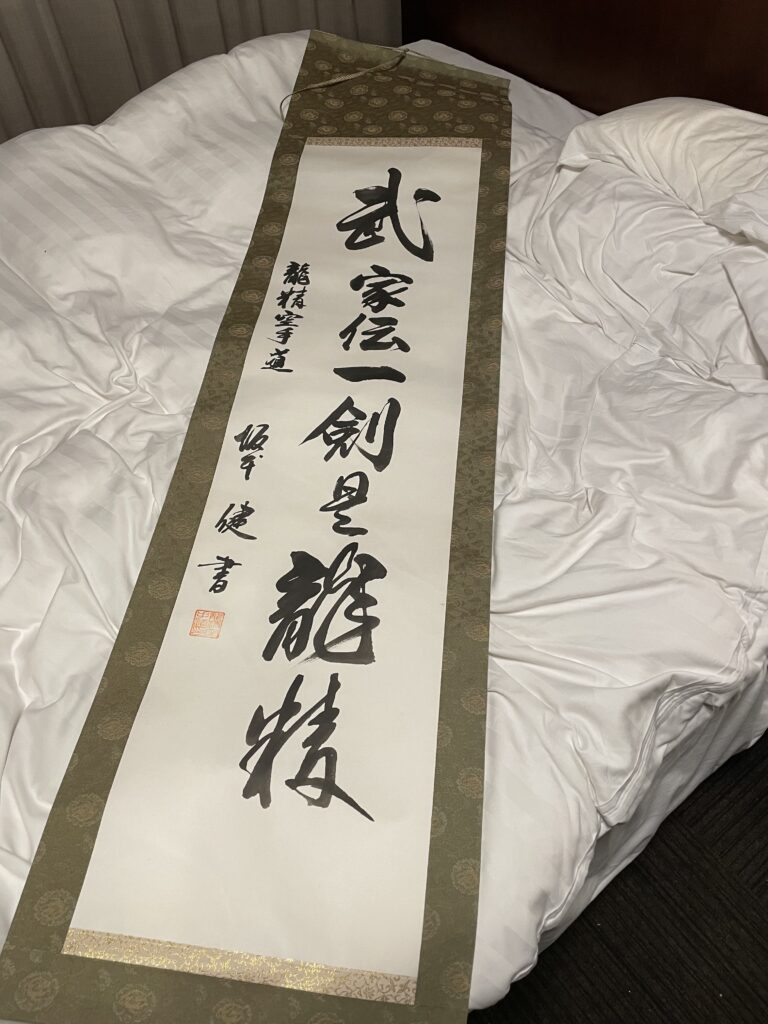 武家伝一劍是龍精
龍精空手道
坂本健書